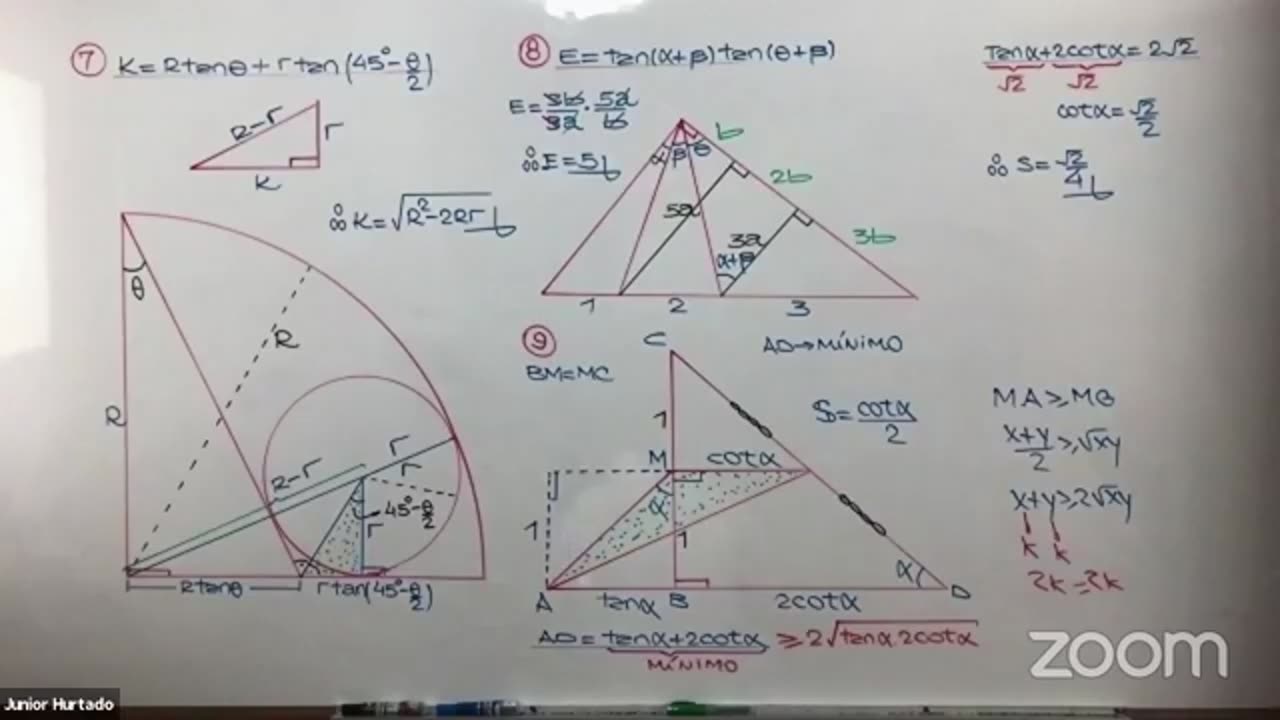 7 K=Rtanθ+rtan(45°-θ/2)
R-r
r
K
∴ K=√(R²-2Rr)
θ
R
R
r
r
R-r
45°-θ/2
r
Rtanθ
rtan(45°-θ/2)
8 E=tan(α+β)tan(θ+β)
E=3b/3a·5a/b
∴ E=5
α β θ
b
2b
3b
5a
3a
α+β
1 2 3
tanα+2cotα=2√2
√2 √2
cotα=√2/2
∴ S=√2/4
9
BM=MC
AD→MÍNIMO
C
1
S=cotα/2
M cotα
α
1
1
α
A tanα B 2cotα D
AD=tanα+2cotα ≥2√(tanα.2cotα)
MÍNIMO
MA≥MG
x+y/2≥√xy
x+y≥2√xy
k k
2k=2k
zoom
Junior Hurtado